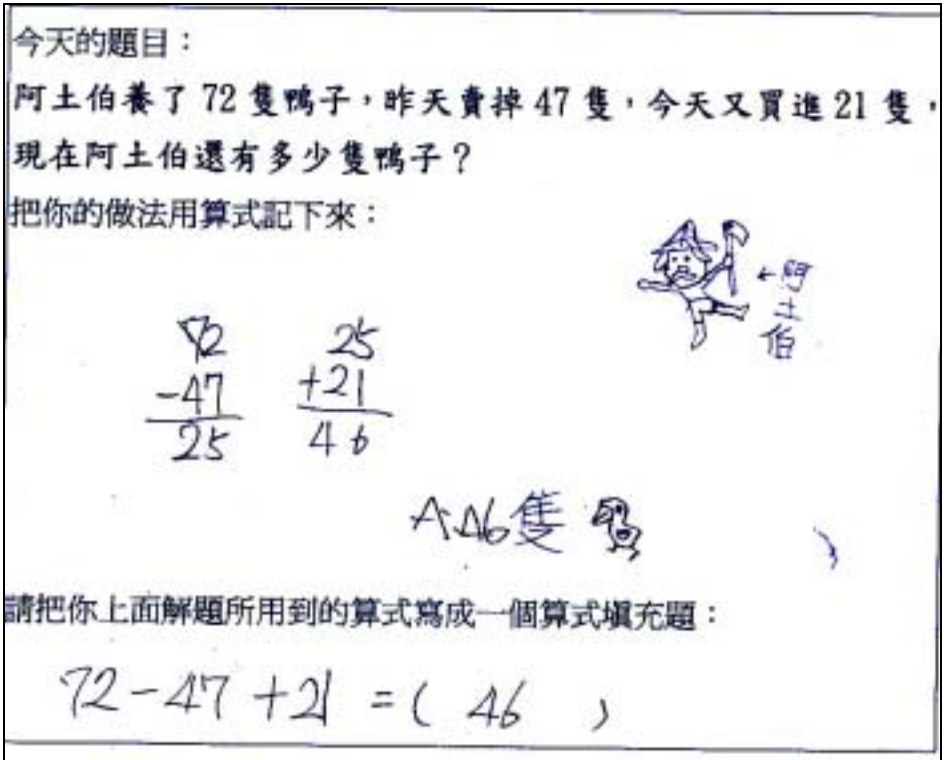 今天的題目：
阿土伯養了 72 隻鴨子，昨天賣掉 47 隻，今天又買進 21 隻，
現在阿土伯還有多少隻鴨子？
把你的做法用算式記下來：
←阿土伯
72
-47
25
25
+21
46
A:46隻
請把你上面解題所用到的算式寫成一個算式填充題：
72-47+21=( 46 )